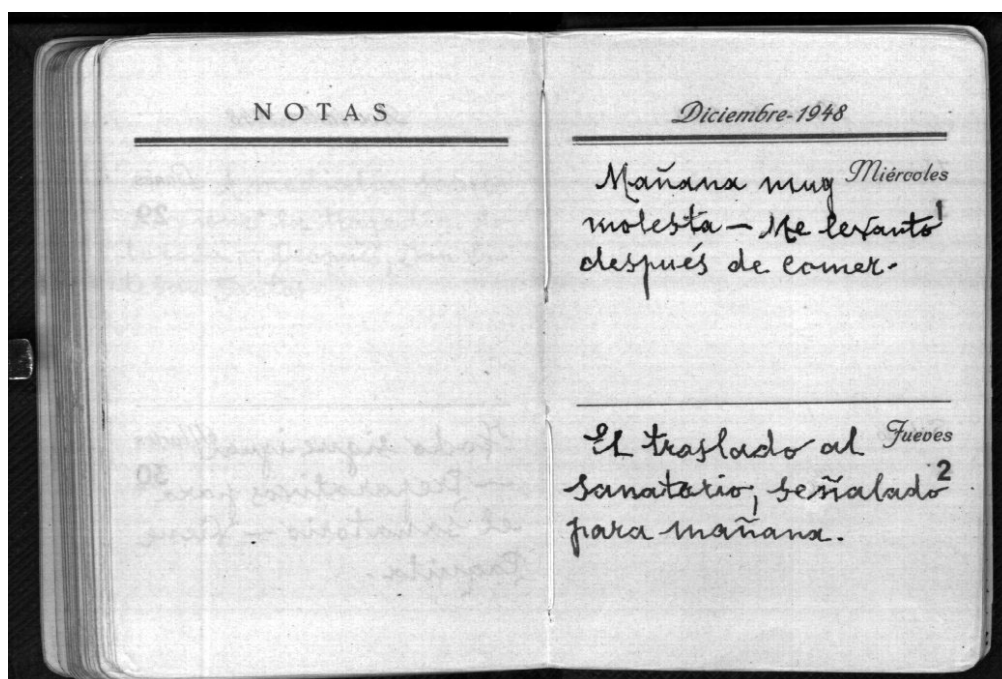 NOTAS
Diciembre-1948
Miércoles
1
Mañana muy
molesta – Me levanto
después de comer.
Jueves
2
El traslado al
sanatorio, señalado
para mañana.